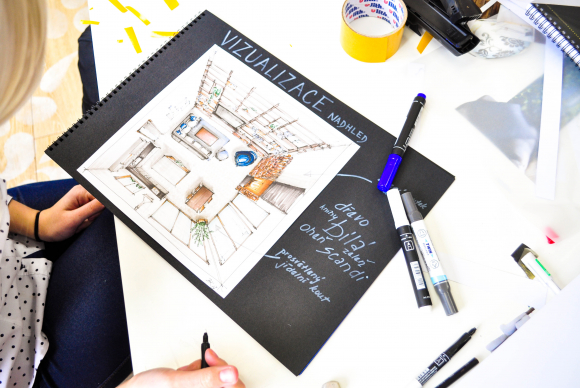 VIZUALIZACE NADHLED
dřevo
knihy bílá
oheň zeleň
scandi
prosvětlený
jídelní kout